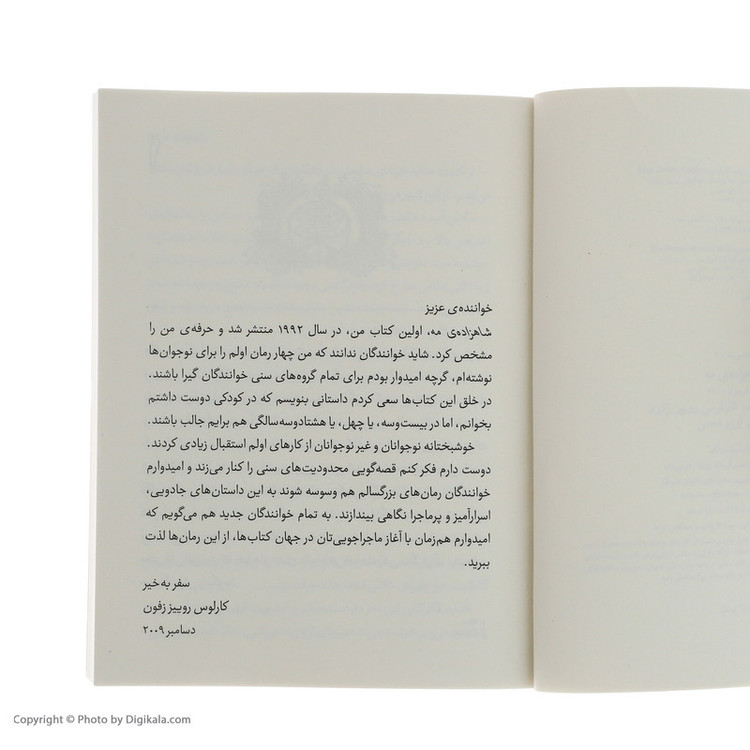 خواننده‌ی عزیز
شاهزاده‌ی مه، اولین کتاب من، در سال ۱۹۹۲ منتشر شد و حرفه‌ی من را
مشخص کرد. شاید خوانندگان ندانند که من چهار رمان اولم را برای نوجوان‌ها
نوشته‌ام، گرچه امیدوار بودم برای تمام گروه‌های سنی خوانندگان گیرا باشند.
در خلق این کتاب‌ها سعی کردم داستانی بنویسم که در کودکی دوست داشتم
بخوانم، اما در بیست‌وسه، یا چهل، یا هشتادوسه‌سالگی هم برایم جالب باشند.
خوشبختانه نوجوانان و غیر نوجوانان از کارهای اولم استقبال زیادی کردند.
دوست دارم فکر کنم قصه‌گویی محدودیت‌های سنی را کنار می‌زند و امیدوارم
خوانندگان رمان‌های بزرگسالم هم وسوسه شوند به این داستان‌های جادویی،
اسرارآمیز و پرماجرا نگاهی بیندازند. به تمام خوانندگان جدید هم می‌گویم که
امیدوارم هم‌زمان با آغاز ماجراجویی‌تان در جهان کتاب‌ها، از این رمان‌ها لذت
ببرید.
سفر به خیر
کارلوس روییز زفون
دسامبر ۲۰۰۹
Copyright © Photo by Digikala.com